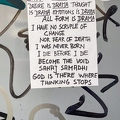 DESIRE IS DRAMA THOUGHT
IS DRAMA EMOTIONS IS DRAMA
ALL FORM IS DRAMA
I HAVE NO SCRUPLE OF
CHANGE
NOR FEAR OF DEATH
I WAS NEVER BORN
I DIE BEFORE I DIE
BECOME THE VOID
SAHAJ SAMADHI
GOD IS THERE WHERE
THINKING STOPS